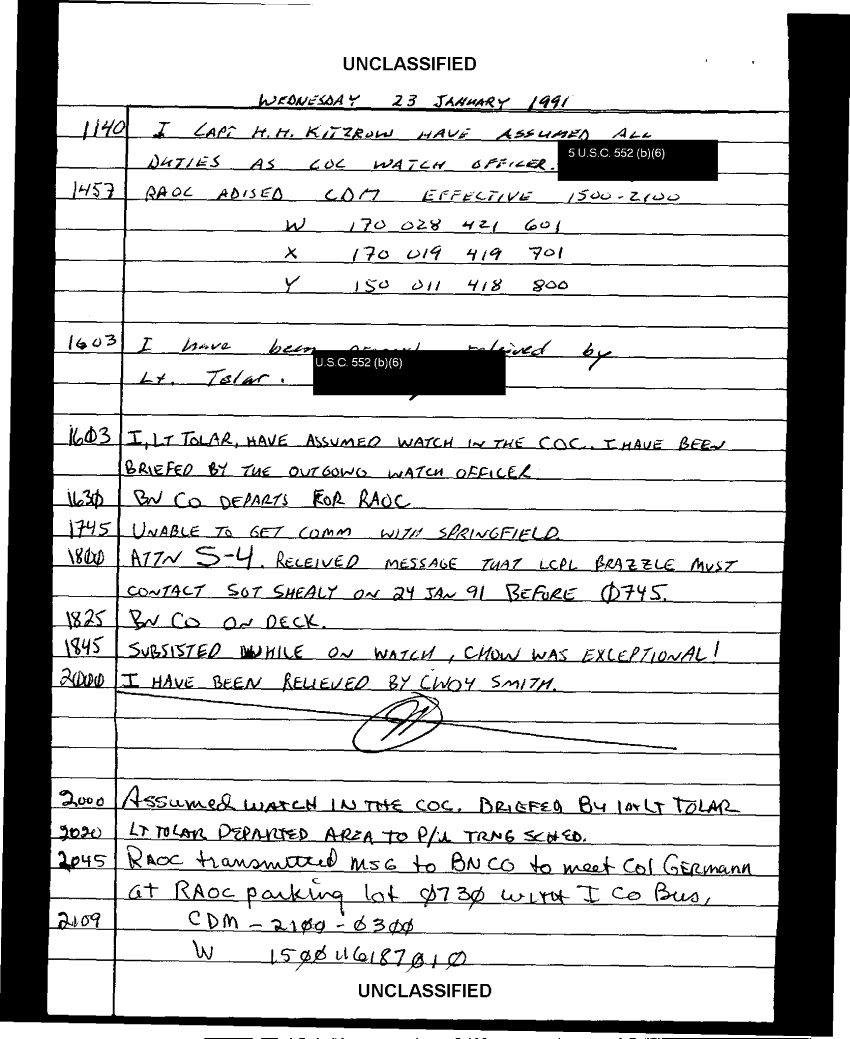 UNCLASSIFIED
WEDNESDAY 23 JANUARY 1991
1140 I CAPT H.H. KITZROW HAVE ASSUMED ALL
DUTIES AS COC WATCH OFFICER. 5 U.S.C. 552 (b)(6)
1457 RAOC ADISED CDM EFFECTIVE 1500-2100
W 170 028 421 601
X 170 019 419 701
Y 150 011 418 800
1603 I have been releived by
Lt. Tolar. U.S.C. 552 (b)(6)
1603 I, LT TOLAR, HAVE ASSUMED WATCH IN THE COC. I HAVE BEEN
BRIEFED BY THE OUTGOING WATCH OFFICER
1630 BN CO DEPARTS FOR RAOC
1745 UNABLE TO GET COMM WITH SPRINGFIELD.
1800 ATTN S-4. RECEIVED MESSAGE THAT LCPL BRAZZLE MUST
CONTACT SGT SHEALY ON 24 JAN 91 BEFORE 0745.
1825 BN CO ON DECK.
1845 SUBSISTED WHILE ON WATCH, CHOW WAS EXCEPTIONAL!
2000 I HAVE BEEN RELIEVED BY CWO4 SMITH.
2000 ASSUMED WATCH IN THE COC. BRIEFED BY 1st LT TOLAR
2020 LT TOLAR DEPARTED AREA TO P/U TRNG SCHED.
2045 RAOC transmitted MSG to BN CO to meet Col GERMANN
at RAOC parking lot 0730 with I Co Bus,
2109 CDM - 2100 - 0300
W
UNCLASSIFIED